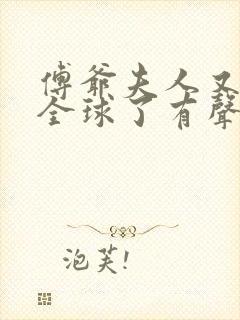 傅爺夫人又
全球了有聲
泡芙!